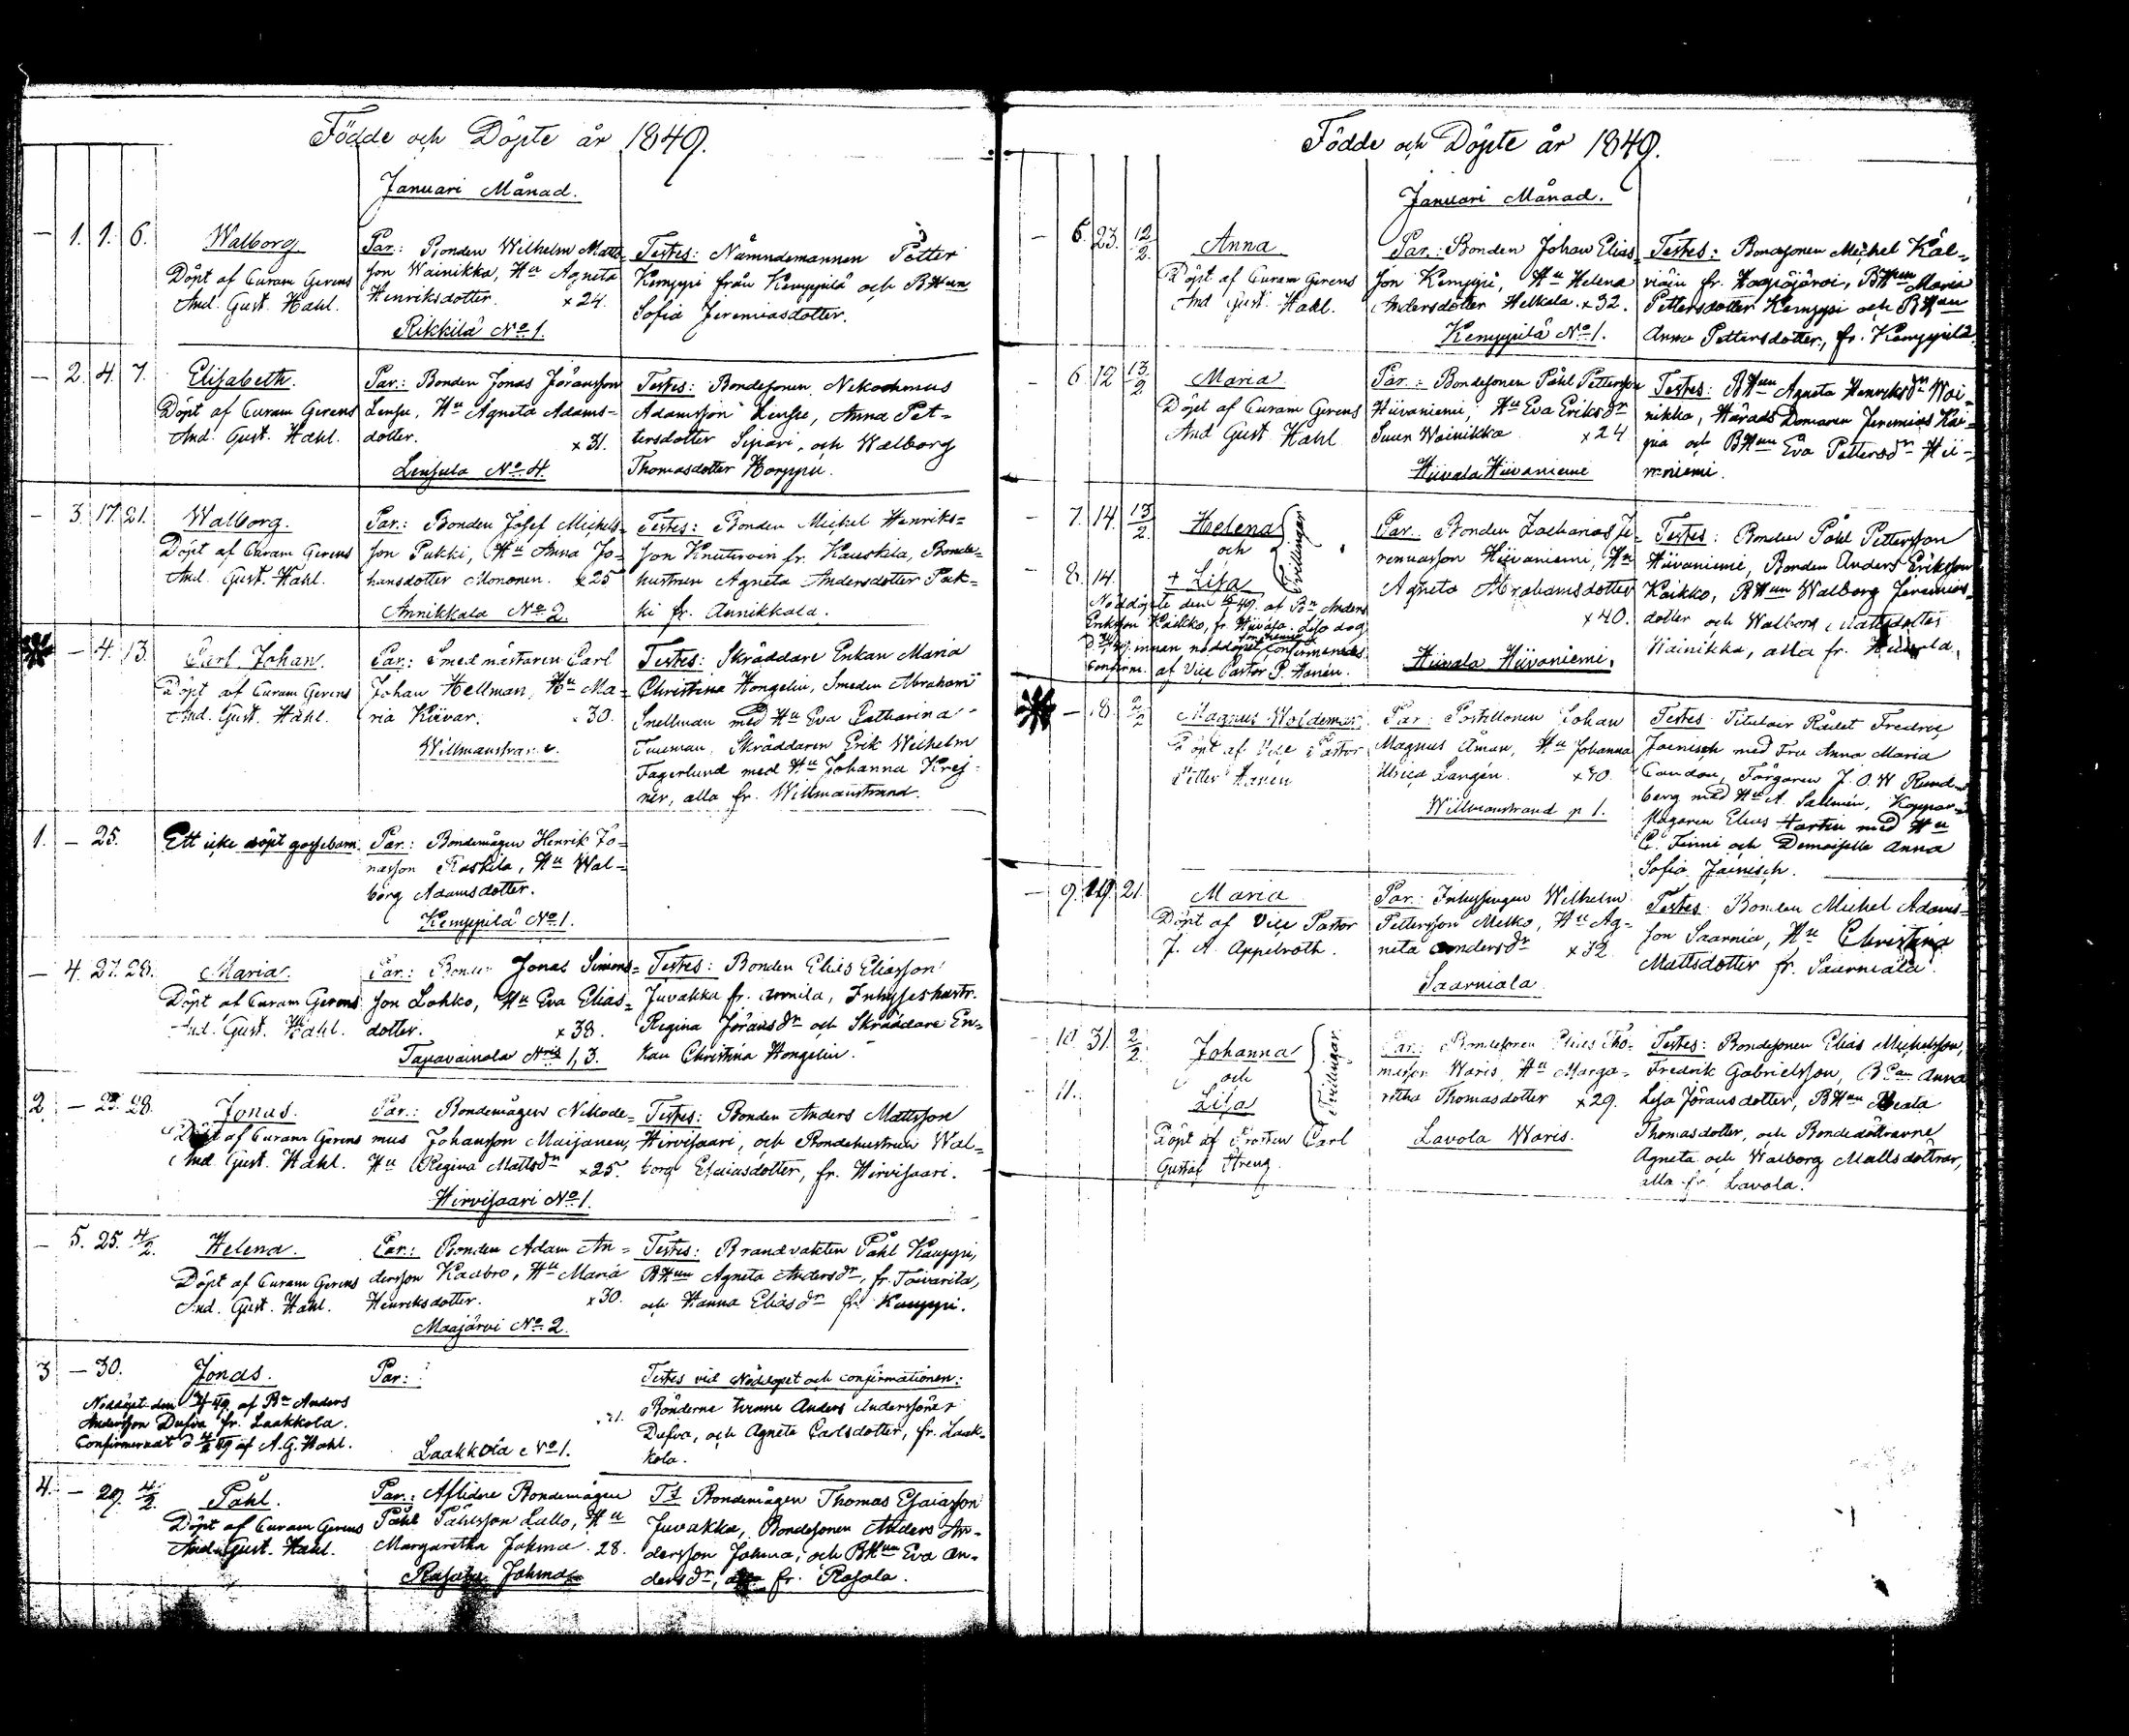 Födde och Döpte år 1849.
Januari Månad.
— 1. 1. 6. Walborg
Döpt af Curam Gerens
And. Gust. Hahl.
Par: Bonden Wilhelm Matts-
son Wainikka, Hu Agneta
Henriksdotter. x 24.
Rikkilä No 1.
Testes: Nämndemannen Petter
Kemppi från Kemppilä och BHun
Sofia Jeremiasdotter.
— 2. 4. 7. Elisabeth.
Döpt af Curam Gerens
And. Gust. Hahl.
Par: Bonden Jonas Jöransson
Lensu, Hu Agneta Adams-
dotter. x 31.
Lensula No 4.
Testes: Bondesonen
Adamsson Lensu, Anna Pet-
tersdotter Sipari, och Walborg
Thomasdotter Horppu.
— 3. 17. 21. Walborg.
Döpt af Curam Gerens
And. Gust. Hahl.
Par: Bonden Josef Michels-
son Pukki, Hu Anna Jo-
hansdotter Mononen. x 25
Annikkala No 2.
Testes: Bonden Michel Henriks-
son Knuteroin fr. Kauskila, Bonde-
hustrun Agneta Andersdotter Puk-
ki fr. Annikkala.
— 4. 13. Carl Johan.
Döpt af Curam Gerens
And. Gust. Hahl.
Par: Smedmästaren Carl
Johan Hellman, Hu Ma-
ria Kiivar. x 30.
Willmanstrand.
Testes: Skräddare Enkan Maria
Christina Hongelin, Smeden Abraham
Snellman med Hu Eva Catharina
Skräddaren Erik Wilhelm
Fagerlund med Hu Johanna Krej-
ner, alla fr. Willmanstrand.
1. — 25. Ett icke döpt gossebarn.
Par: Bondemågen Henrik Jo-
nasson Raskila, Hu Wal-
borg Adamsdotter.
Kemppilä No 1.
— 4. 27. 28. Maria.
Döpt af Curam Gerens
And. Gust. Hahl.
Par: Bonden Jonas Simons-
son Lohko, Hu Eva Elias-
dotter. x 38.
Tapavainola Nris 1, 3.
Testes: Bonden Elias Eliasson
Juvakka fr. Armila, Inhyseshustr.
Regina Jöransdr och Skräddare En-
kan Christina Hongelin.
2 — 23. 28. Jonas.
Döpt af Curam Gerens
And. Gust. Hahl.
Par: Bondemågen Nikode-
mus Johansson Maijanen,
Hu Regina Mattsdr x 25.
Hirvisaari No 1.
Testes: Bonden Anders Mattsson
Hirvisaari, och Bondehustrun Wal-
borg Esaiasdotter, fr. Hirvisaari.
— 5. 25. 4/2. Helena.
Döpt af Curam Gerens
And. Gust. Hahl.
Par: Bonden Adam An-
dersson Kaabro, Hu Maria
Henriksdotter. x 30.
Maajärvi No 2.
Testes: Brandvakten Påhl Kauppi,
BHun Agneta Andersdr, fr. Toivarila,
och Hanna Eliasdr fr Kauppi.
3 — 30. Jonas.
Nöddöpt den 49 af Bn Anders
Andersson Dufva fr. Laakkola.
Confirmerat d 4/2 49 af A. G. Hahl.
Par:
Laakkola No 1.
Testes vid Nöddopet och confirmationen:
Bönderne Anders Anderssöner
Dufva, och Agneta Carlsdotter, fr. Laak-
kola.
4. — 29. 4/2. Påhl.
Döpt af Curam Gerens
And. Gust. Hahl.
Par: Aflidne Bondemågen
Påhl Påhlsson Lallo, Hu
Margaretha Johma. 28.
Rasala Johma
Tt Bondemågen Thomas Esaiasson
Juvakka, Bondesonen Anders An-
dersson Johma, och BHun Eva An-
dersdr, fr. Rasala.
Födde och Döpte år 1849.
Januari Månad.
— 6. 23. 12/2. Anna
Döpt af Curam Gerens
And Gust. Hahl.
Par: Bonden Johan Elias-
son Kemppi, Hu Helena
Andersdotter Helkala. x 32.
Kemppilä No 1.
Testes: Bondsonen Michel Käl-
viäin fr. Haapajärvi, BHun Maria
Pettersdotter Kemppi och BHun
Anna Pettersdotter, fr. Kemppilä.
— 6 12 13/2 Maria.
Döpt af Curam Gerens
And Gust Hahl
Par: Bondesonen Påhl Pettersson
Hiivaniemi, Hu Eva Eriksdr
Suur Wainikka x 24
Hiivala Hiivaniemi
Testes: BHun Agneta Henriksdr Wai-
nikka, Härads Domaren Jeremias Kai-
pia och BHun Eva Pettersdr Hii-
vaniemi.
— 7. 14. 13/2. Helena
och
— 8. 14. + Lisa
Tvillingar
Nöddöpte den 49. af Bn Anders
Eriksson Kaikko, fr. Hiivala. Lisa dog
innan nöddopet confirmerades
Confirm. af Vice Pastor P. Hanén.
Par: Bonden Zacharias Je-
remiasson Hiivaniemi, Hu
Agneta Abrahamsdotter
x 40.
Hiivala Hiivaniemi.
Testes: Bonden Påhl Pettersson
Hiivaniemi, Bonden Anders Eriksson
Kaikko, BHun Walborg Jeremias-
dotter och Walborg Mattsdotter
Wainikka, alla fr. Hiivala.
— 8. 2/2 Magnus Woldemar
Döpt af Vice Pastor
Petter Hanén
Par: Postillonen Johan
Magnus Åman, Hu Johanna
Ulrica Langén. x 40.
Willmanstrand p 1.
Testes: Titulair Rådet Fredric
Jaenisch med Fru Anna Maria
Candau, Färgaren J. O. W Rund-
berg med Hu A. Sallmén, Koppar-
slagaren Elias Martin med Hu
C. Finni och Demoiselle Anna
Sofia Jaenisch.
— 9. 19. 21. Maria
Döpt af Vice Pastor
J. A. Appelroth.
Par: Inhysingen Wilhelm
Pettersson Melko, Hu Ag-
neta Andersdr x 32
Saarniala.
Testes Bonden Michel Adams-
son Saarnia, Hu Christina
Mattsdotter fr. Saarniala.
— 10. 31. 2/2. Johanna
och
— 11. Lisa
Tvillingar
Döpt af Prosten Carl
Gustaf Streng.
Par: Bondesonen Elias Tho-
masson Waris, Hu Marga-
retha Thomasdotter x 29.
Lavola Waris.
Testes: Bondesonen Elias Michelsson,
Fredrik Gabrielsson, Anna
Lisa Jöransdotter, BHun Beata
Thomasdotter, och Bondedöttrarne
Agneta och Walborg Mattsdöttrar,
alla fr. Lavola.